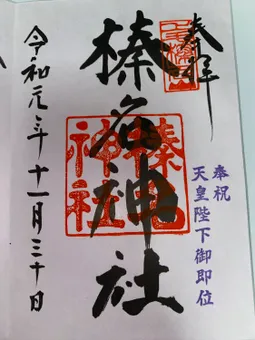 奉拝
榛名神社
榛名神社
奉祝
天皇陛下御即位
令和元年十一月三十日